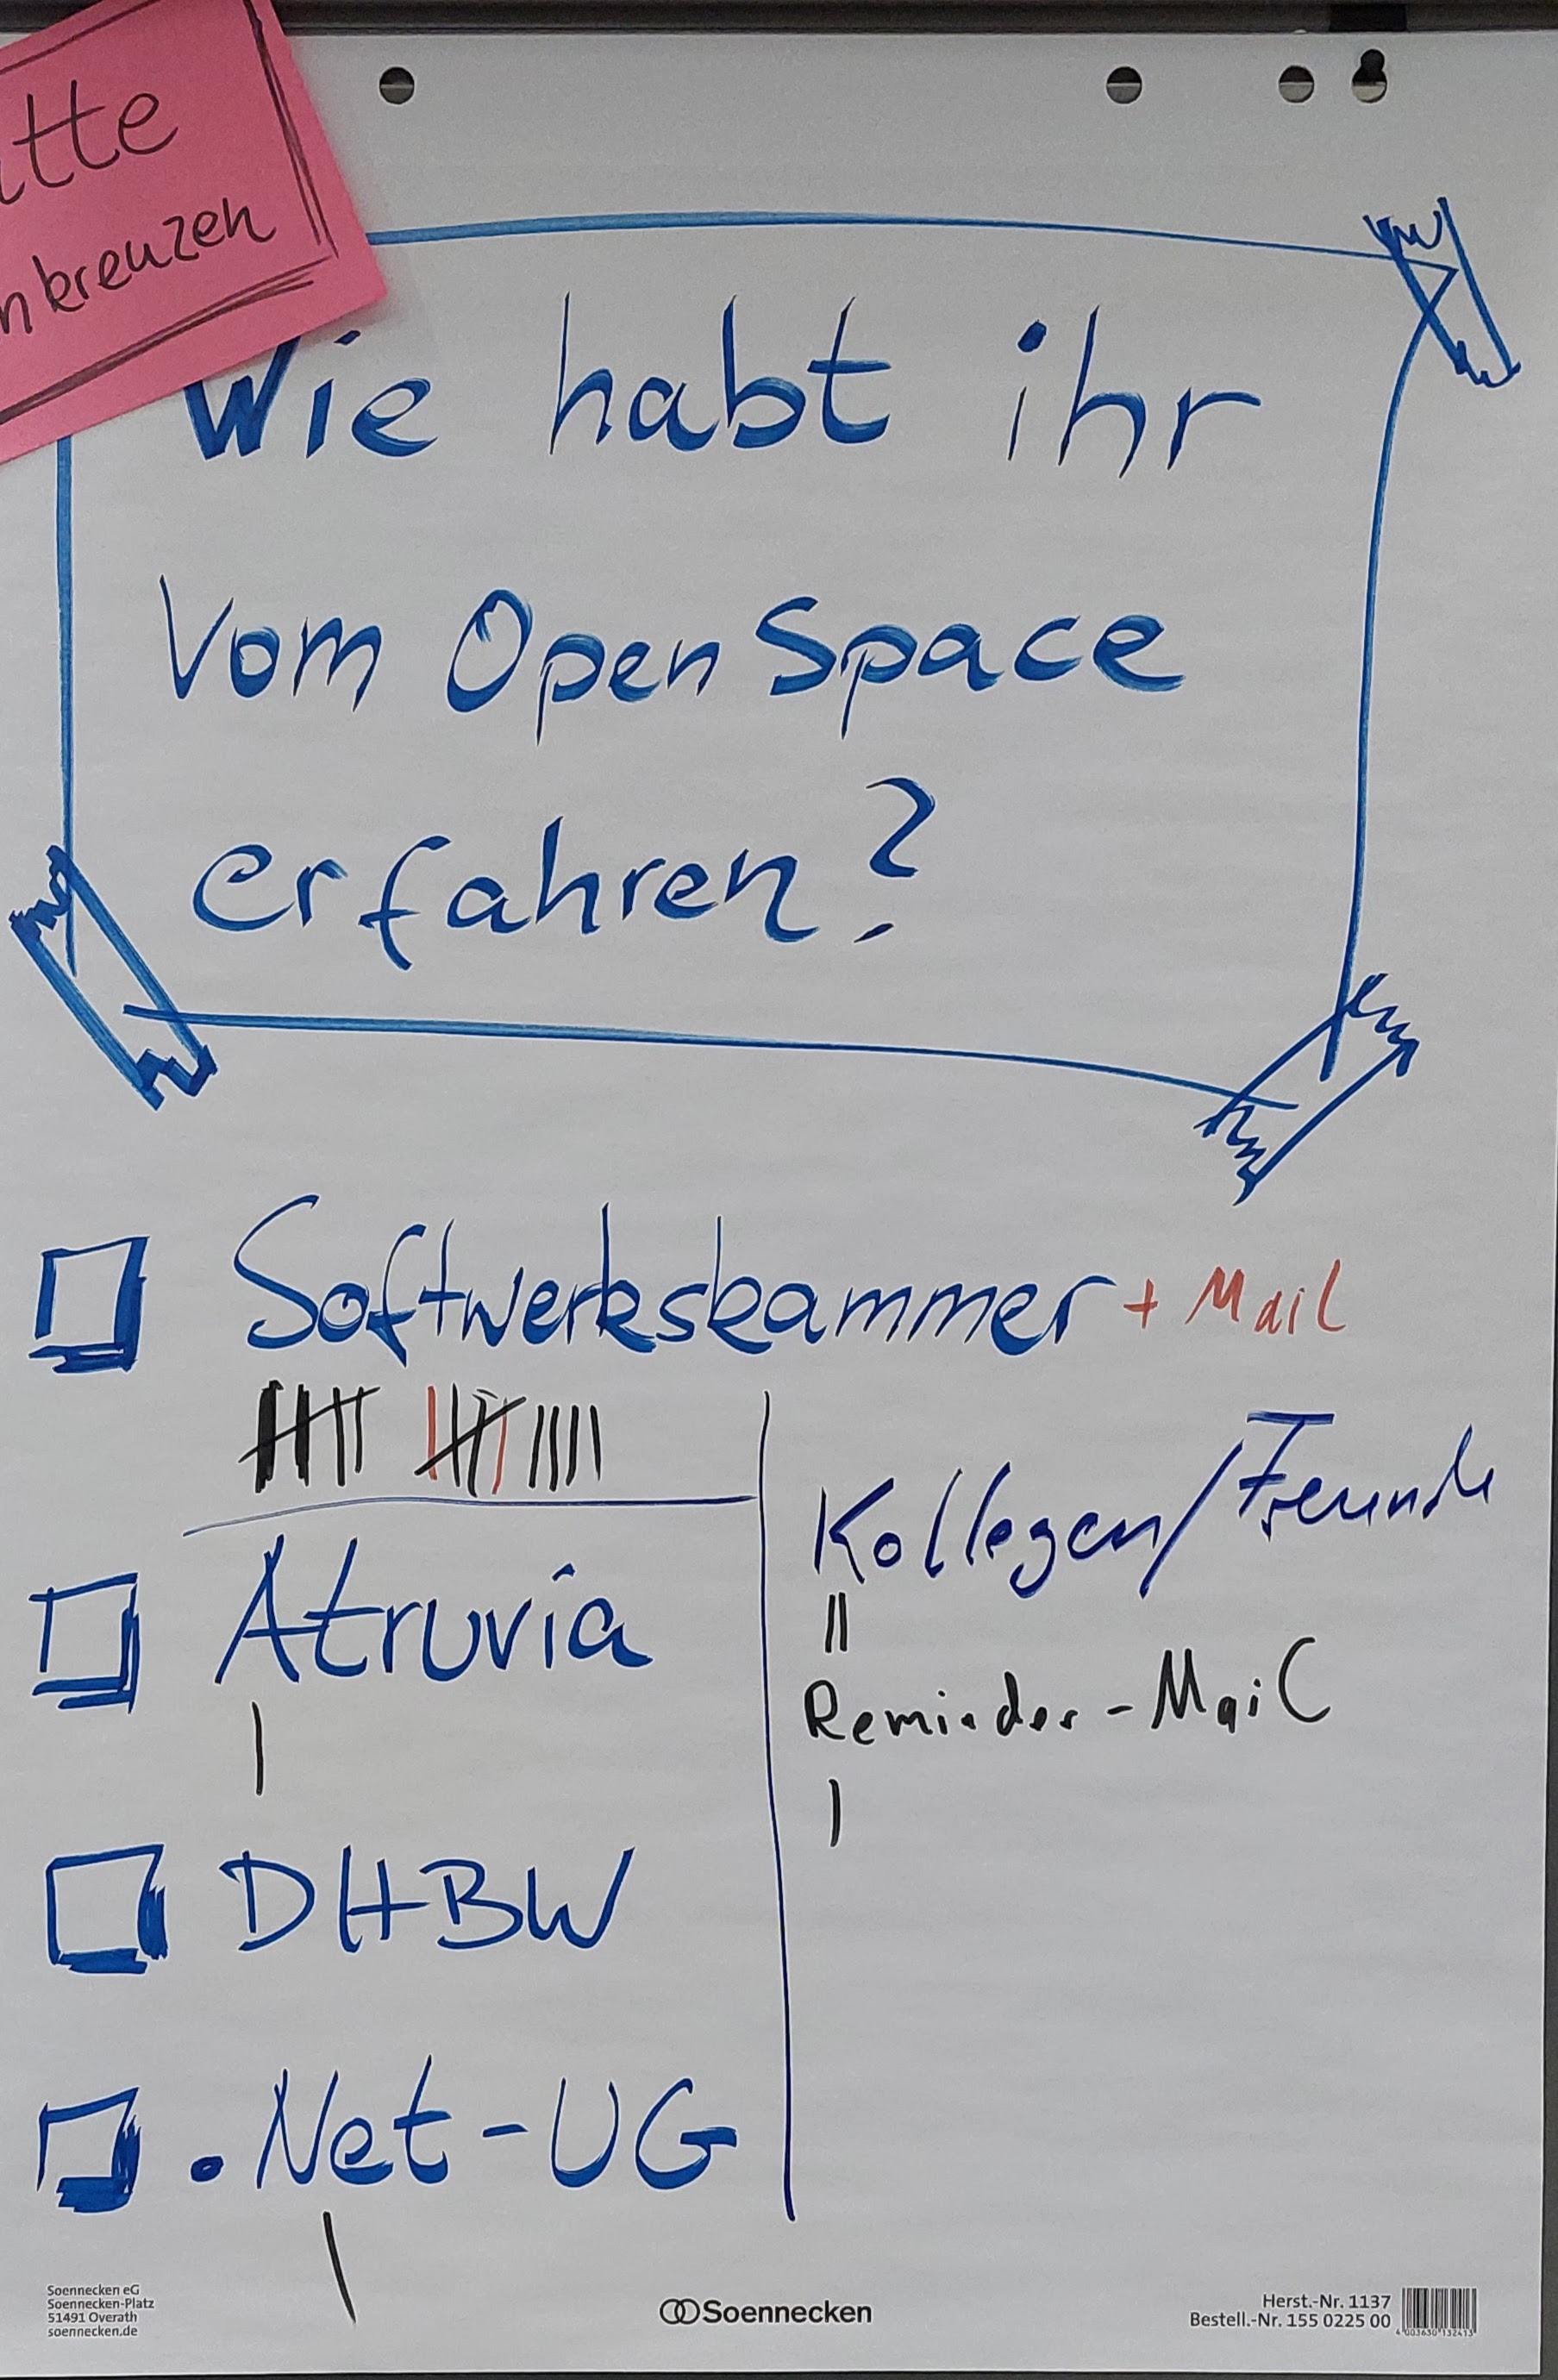 tte
nkreuzen
Wie habt ihr
vom Open Space
erfahren?
Softwerkskammer + Mail
Atruvia
DHBW
.Net-UG
Kollegen/Freunde
Reminder-Mail
Soennecken eG
Soennecken-Platz
51491 Overath
soennecken.de
Soennecken
Herst.-Nr. 1137
Bestell.-Nr. 155 0225 00
4 003630 132413